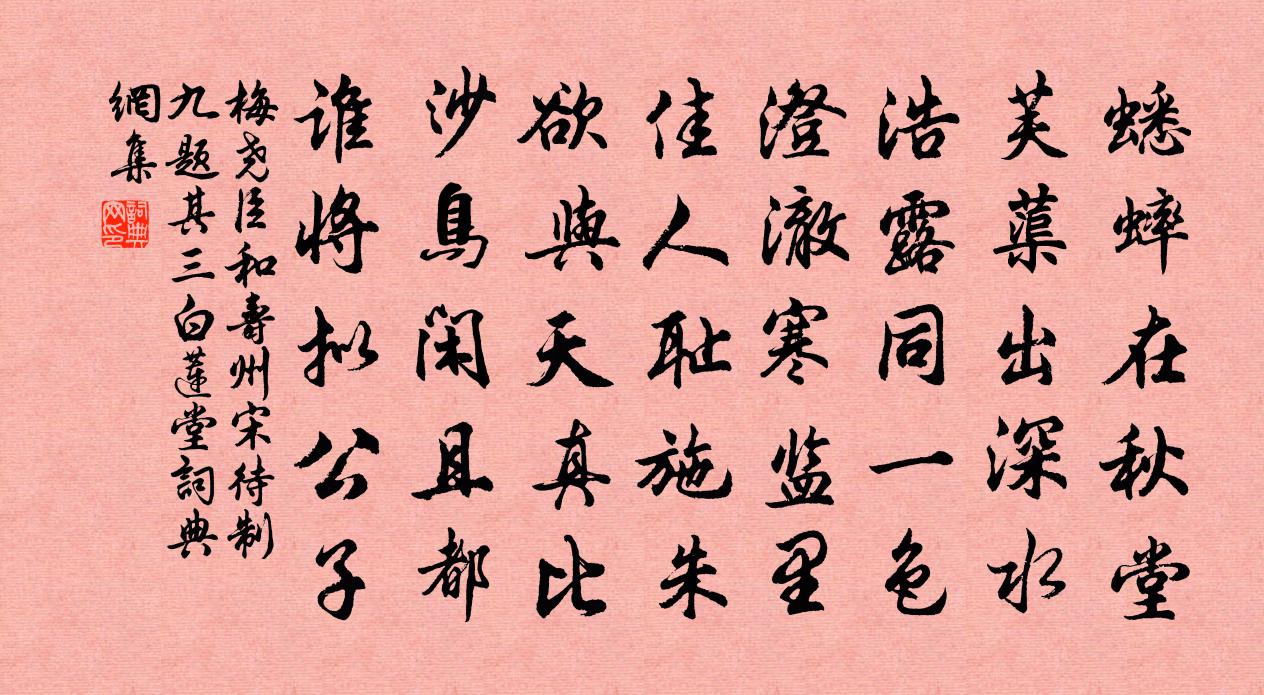 蟋蟀在秋堂
芙蕖出深水
浩露同一色
澄澈寒监里
佳人耻施朱
欲與天真比
沙鳥闲且都
谁将拟公子
梅尧臣和壽州宋待制
九题其三白蓮堂詞典
網集
詞典網印